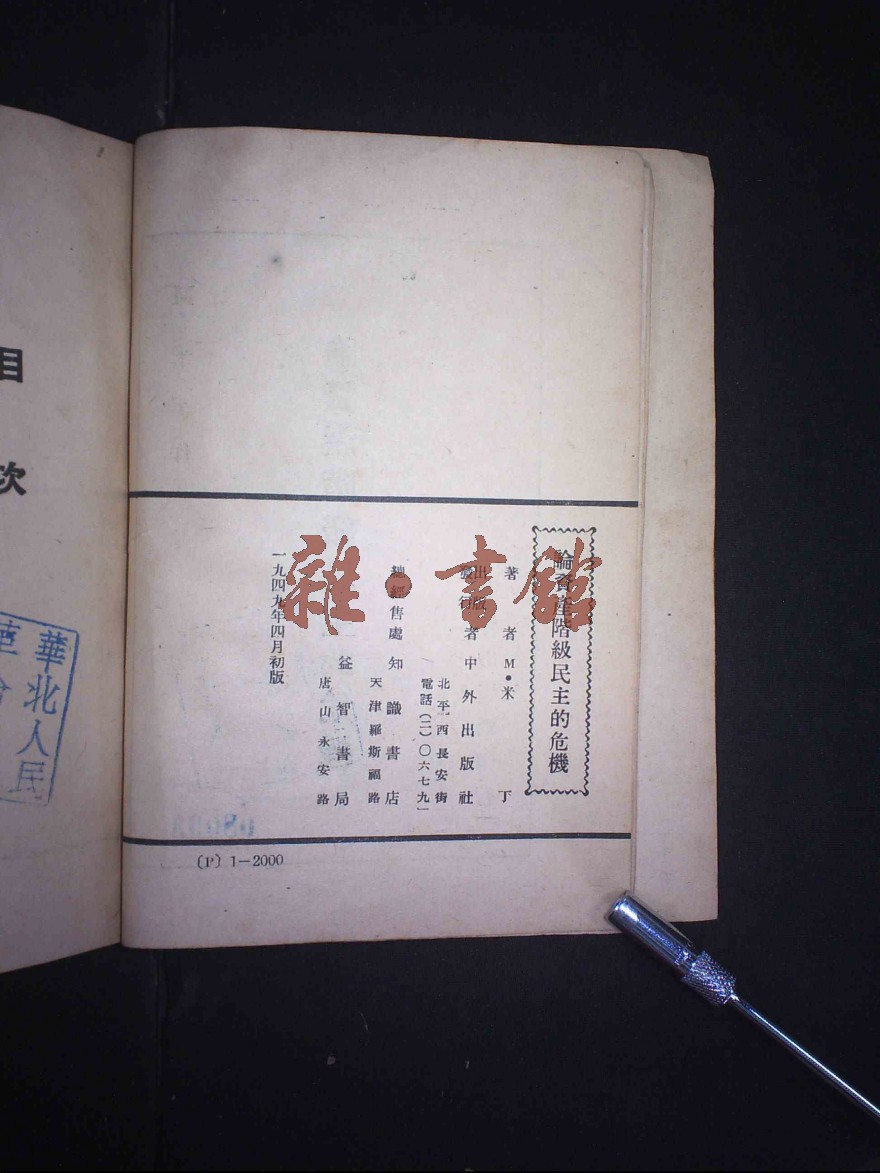 論資產階級民主的危機
著者 M·米丁
出版發行者 中外出版社
北平西長安街
電話(二)〇六七九
總經售處 知識書店
天津羅斯福路
益智書局
唐山永安路
一九四九年四月初版
(P) 1—2000
目次
華北人民
雜·書館